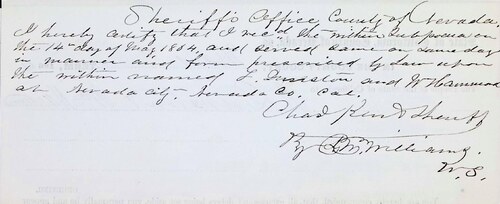 Sheriff's Office County of Nevada
I hereby certify that I rec'd the within subpoena on
the 14th day of May 1864, and served same on same day
in manner and form prescribed by Law upon
the within named and W Hammond
at Nevada city. Nevada Co. Cal.
Chad Kind Sheriff
By Williams.
U.S.